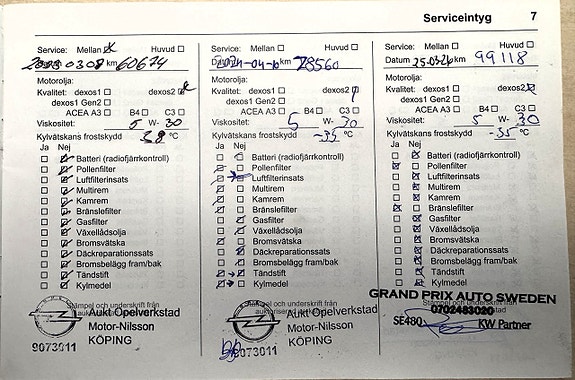 Serviceintyg 7
Service: Mellan Huvud
km 60674
Motorolja:
Kvalitet: dexos1 dexos2
dexos1 Gen2
ACEA A3 B4 C3
Viskositet: 5 W- 30
Kylvätskans frostskydd °C
Ja Nej
Batteri (radiofjärrkontroll)
Pollenfilter
Luftfilterinsats
Multirem
Kamrem
Bränslefilter
Gasfilter
Växellådsolja
Bromsvätska
Däckreparationssats
Bromsbelägg fram/bak
Tändstift
Kylmedel
Stämpel och underskrift från
Aukt Opelverkstad
Motor-Nilsson
KÖPING
9073011
Service: Mellan Huvud
Datum km 78560
Motorolja:
Kvalitet: dexos1 dexos2
dexos1 Gen2
ACEA A3 B4 C3
Viskositet: 5 W- 30
Kylvätskans frostskydd -35 °C
Ja Nej
Batteri (radiofjärrkontroll)
Pollenfilter
Luftfilterinsats
Multirem
Kamrem
Bränslefilter
Gasfilter
Växellådsolja
Bromsvätska
Däckreparationssats
Bromsbelägg fram/bak
Tändstift
Kylmedel
och underskrift från
Aukt Opelverkstad
Motor-Nilsson
KÖPING
9073011
Service: Mellan Huvud
Datum km 99118
Motorolja:
Kvalitet: dexos1 dexos2
dexos1 Gen2
ACEA A3 B4 C3
Viskositet: 5 W- 30
Kylvätskans frostskydd -35 °C
Ja Nej
Batteri (radiofjärrkontroll)
Pollenfilter
Luftfilterinsats
Multirem
Kamrem
Bränslefilter
Gasfilter
Växellådsolja
Bromsvätska
Däckreparationssats
Bromsbelägg fram/bak
Tändstift
Kylmedel
GRAND PRIX AUTO SWEDEN
0702483020
SE480 KW Partner